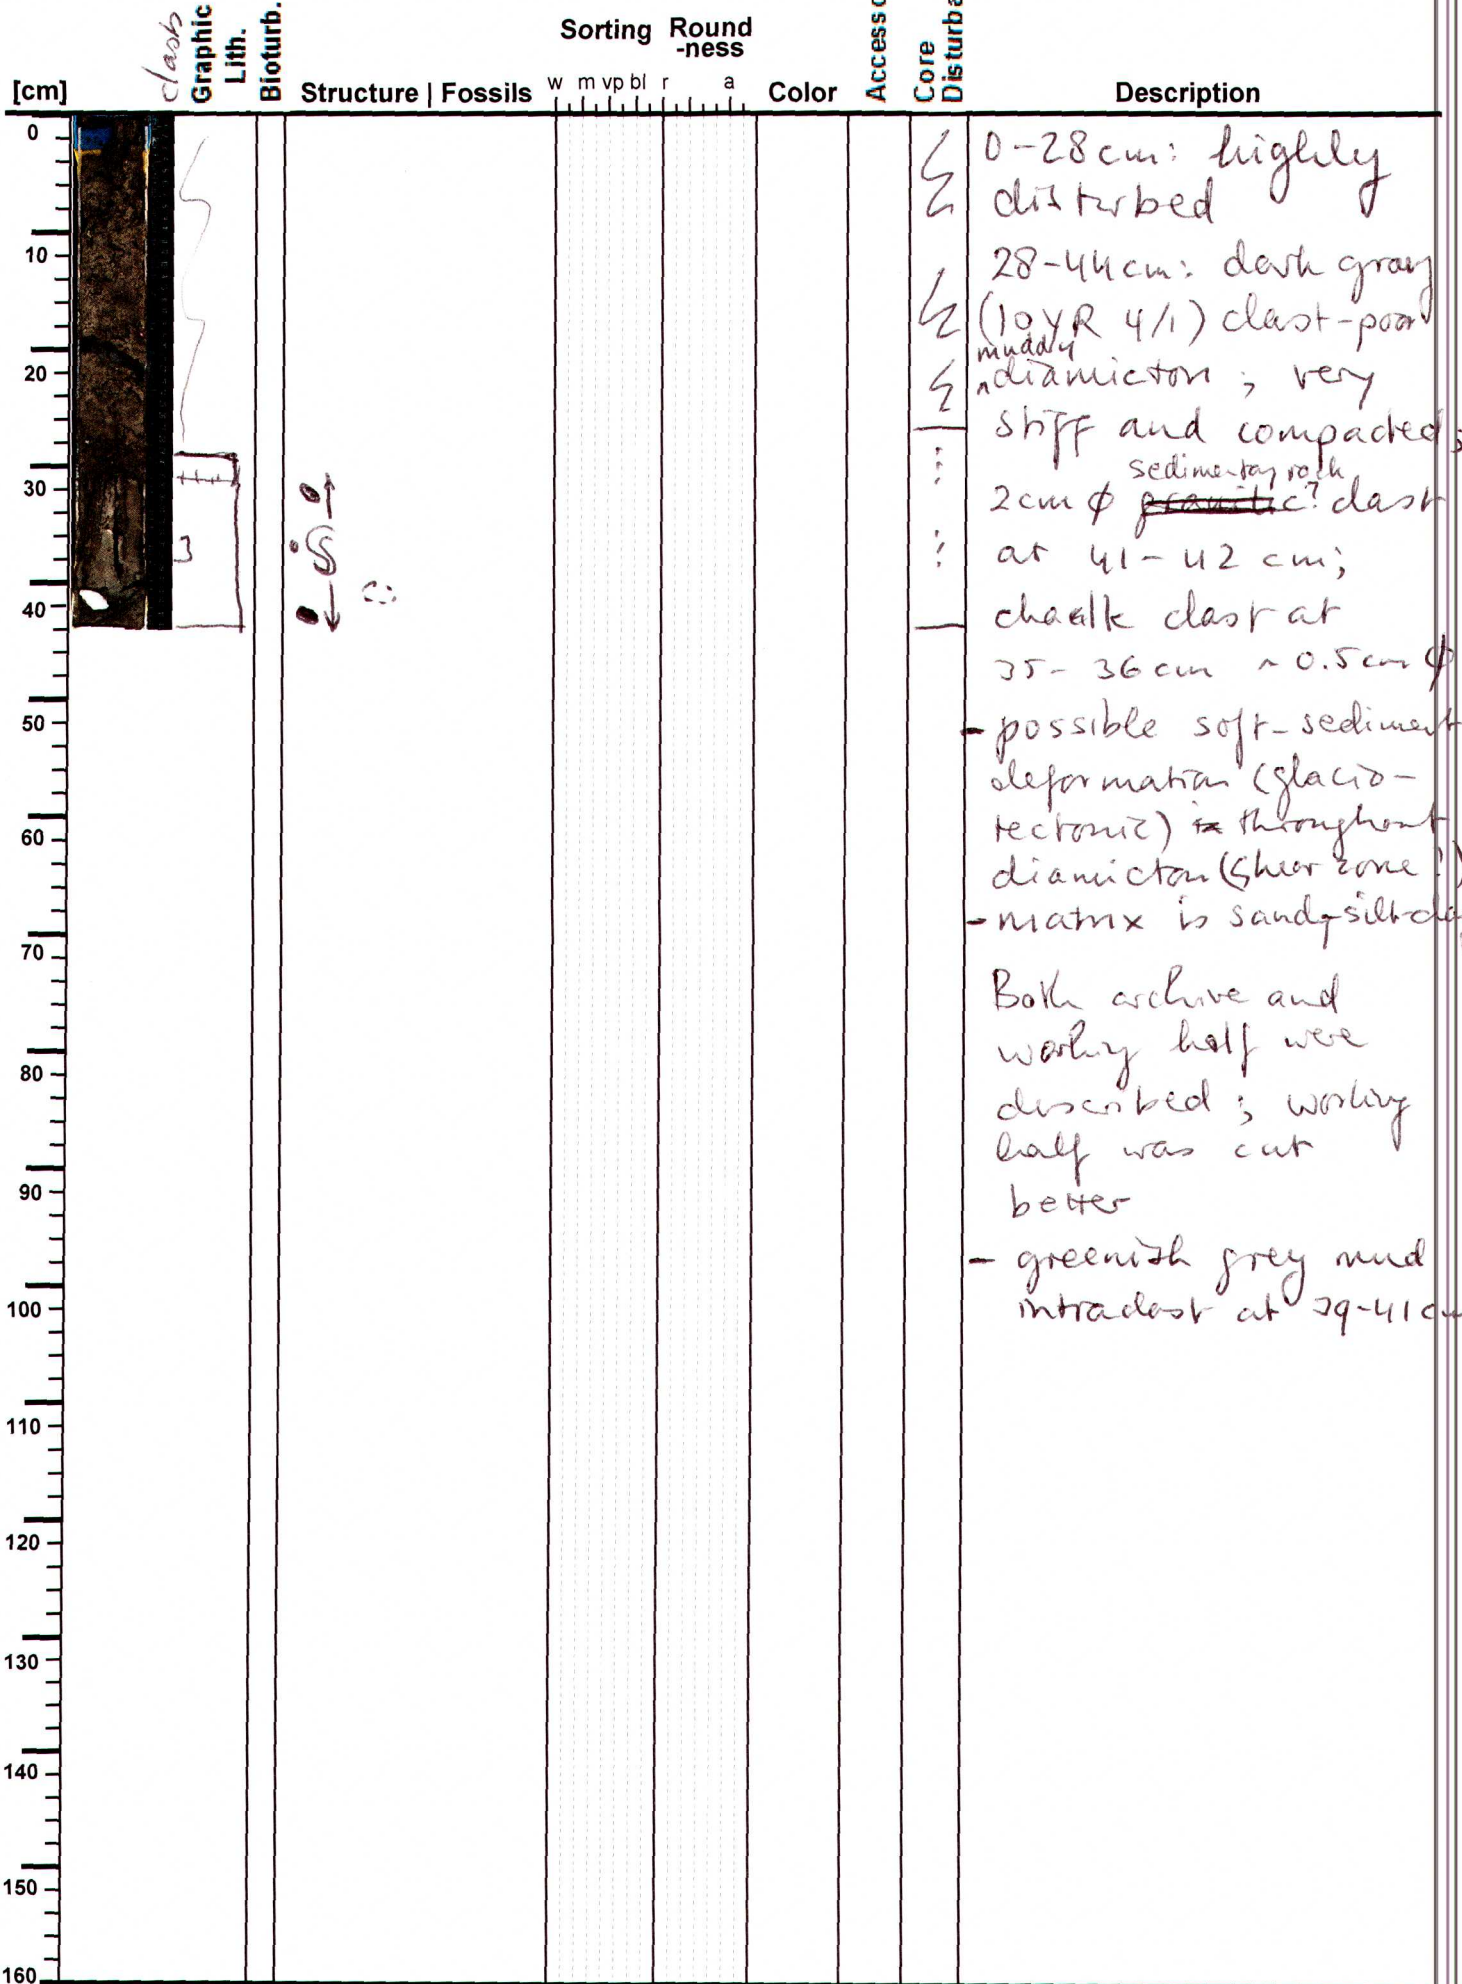 clasts
Graphic
Lith.
Bioturb.
Sorting Round
-ness
Core
Disturba
Accesso
[cm] Structure | Fossils w m vp bl r a Color Description
0
10
20
30
40
50
60
70
80
90
100
110
120
130
140
150
160
3
0-28cm: highly
disturbed
28-44cm: dark gray
(10YR 4/1) clast-poor
muddy
^diamicton ; very
stiff and compacted;
sedimentary rock
2cm φ granitic? clast
at 41-42 cm;
chaalk clast at
35-36cm ~0.5cm φ
- possible soft-sediment
deformation (glacio-
tectonic) throughout
diamicton (shear zone?)
- matrix is sandy-silt-cla
Both archive and
working half were
described ; working
half was cut
better
- greenish grey mud
intraclast at 39-41c